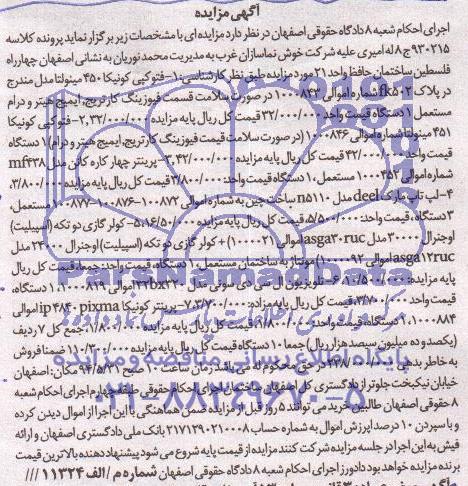 آگهی مزایده
اجرای احکام شعبه ۸ دادگاه حقوقی اصفهان در نظر دارد مزایده ای با مشخصات زیر برگزار نماید پرونده کلاسه
۹۳۰۲۱۵ ج ۸ له امیری علیه شرکت خوش نماسازان غرب به مدیریت محمد نوریان به نشانی اصفهان چهارراه
فلسطین ساختمان حافظ واحد ۲۱ مورد مزایده طبق نظر کارشناسی: ۱- فتوکپی کونیکا ۴۵۰ مینولتا مدل مندرج
در پلاک fk۵۰۲ شماره اموالی ۱۰۰۰۸۴۳ در صورت سلامت قسمت فیوزینگ کارتریج، ایمیج هیتر و درام
مستعمل ۱ دستگاه قیمت واحد ۳۲/۰۰۰/۰۰۰ قیمت کل ریال پایه مزایده ۲-۳۲/۰۰۰/۰۰۰ فتوکپی کونیکا
۴۵۱ مینولتا شماره اموالی ۱۰۰۰۸۴۶ (در صورت سلامت قیمت فیوزینگ کارتریج، ایمیج هیتر و درام) ۱ دستگاه
قیمت واحد ۴۲/۰۰۰/۰۰۰ قیمت کل ریال پایه مزایده ۳-۴۲/۰۰۰/۰۰۰ پرینتر چهار کاره کانن مدل mf۴۳۸
شماره اموالی ۱۰۰۰۴۵۲ مستعمل، ۱ دستگاه قیمت واحد: ۳/۸۰۰/۰۰۰ قیمت کل ریال پایه مزایده ۳/۸۰۰/۰۰۰
۴- لپ تاپ مارک deel مدل n۵۱۱۰ ساخت چین به شماره اموالی ۱۰۰۰۸۷۲-۱۰۰۰۸۷۶-۱۰۰۰۸۷۷ مستعمل،
۳ دستگاه، قیمت واحد: ۵/۵۰۰/۰۰۰ قیمت کل ریال پایه مزایده ۵-۱۶/۵۰۰/۰۰۰ کولر گازی دو تکه (اسپیلیت)
اوجنرال ۳۰۰۰۰ مدل asga۳۰ruc اموالی (۱۰۰۰۰۲۱) + کولر گازی دو تکه (اسپیلیت) اوجنرال ۲۴۰۰۰ مدل
asga۱۲ruc اموالی (۱۰۰۰۰۹۲) مونتاژ به ساختمان مستعمل، ۱ دستگاه، قیمت واحد: جمعا، قیمت کل ریال
پایه مزایده: تلویزیون ال سی دی سونی مدل ۱۰۰۰۸۱۹، ۱ دستگاه،
قیمت واحد ۳/۷۰۰/۰۰۰ قیمت کل ریال پایه مزایده: ۷-۳/۷۰۰/۰۰۰ پرینتر کونیکا ip۴۸۴۰ pixma اموالی
۱۰۰۰۸۸۴، ۱ دستگاه قیمت واحد: ۱/۸۰۰/۰۰۰ قیمت کل ریال پایه مزایده ۱/۸۰۰/۰۰۰ جمع کل ۷ ردیف
(یکصد و ده میلیون سیصد هزار ریال) جمعا ۱۰ دستگاه قیمت کل ریال پایه مزایده ۱۱۰/۳۰۰/۰۰۰ ضمنا فروش
به خاطر بدهی در حق محکوم له می باشد زمان ساعت ۱۰ صبح ۹۴/۵/۳۱ مکان: اصفهان
خیابان نیکبخت جلوتر از دادگستری کل اصفهان ساختمان اجرای احکام حقوقی طبقه چهارم اجرای احکام شعبه
۸ حقوقی اصفهان طالبین خرید می توانند ۵ روز قبل از مزایده ضمن هماهنگی با این اجرا از اموال دیدن کرده
و با سپردن ۱۰ درصد ارزش اموال به شماره حساب ۲۱۷۱۲۹۰۲۱۰۰۰۸ بانک ملی دادگستری اصفهان و ارائه
فیش به این اجرا در جلسه مزایده شرکت کنند مزایده از قیمت پایه شروع می شود پیشنهاد دهنده بالاترین قیمت
برنده مزایده خواهد بود دادورز اجرای احکام شعبه ۸ دادگاه حقوقی اصفهان شماره م / الف ۱۱۳۲۴ ///
ParsNamadData
پایگاه اطلاع رسانی مناقصه و مزایده
۰۲۱-۸۸۳۴۹۶۷۰-۵